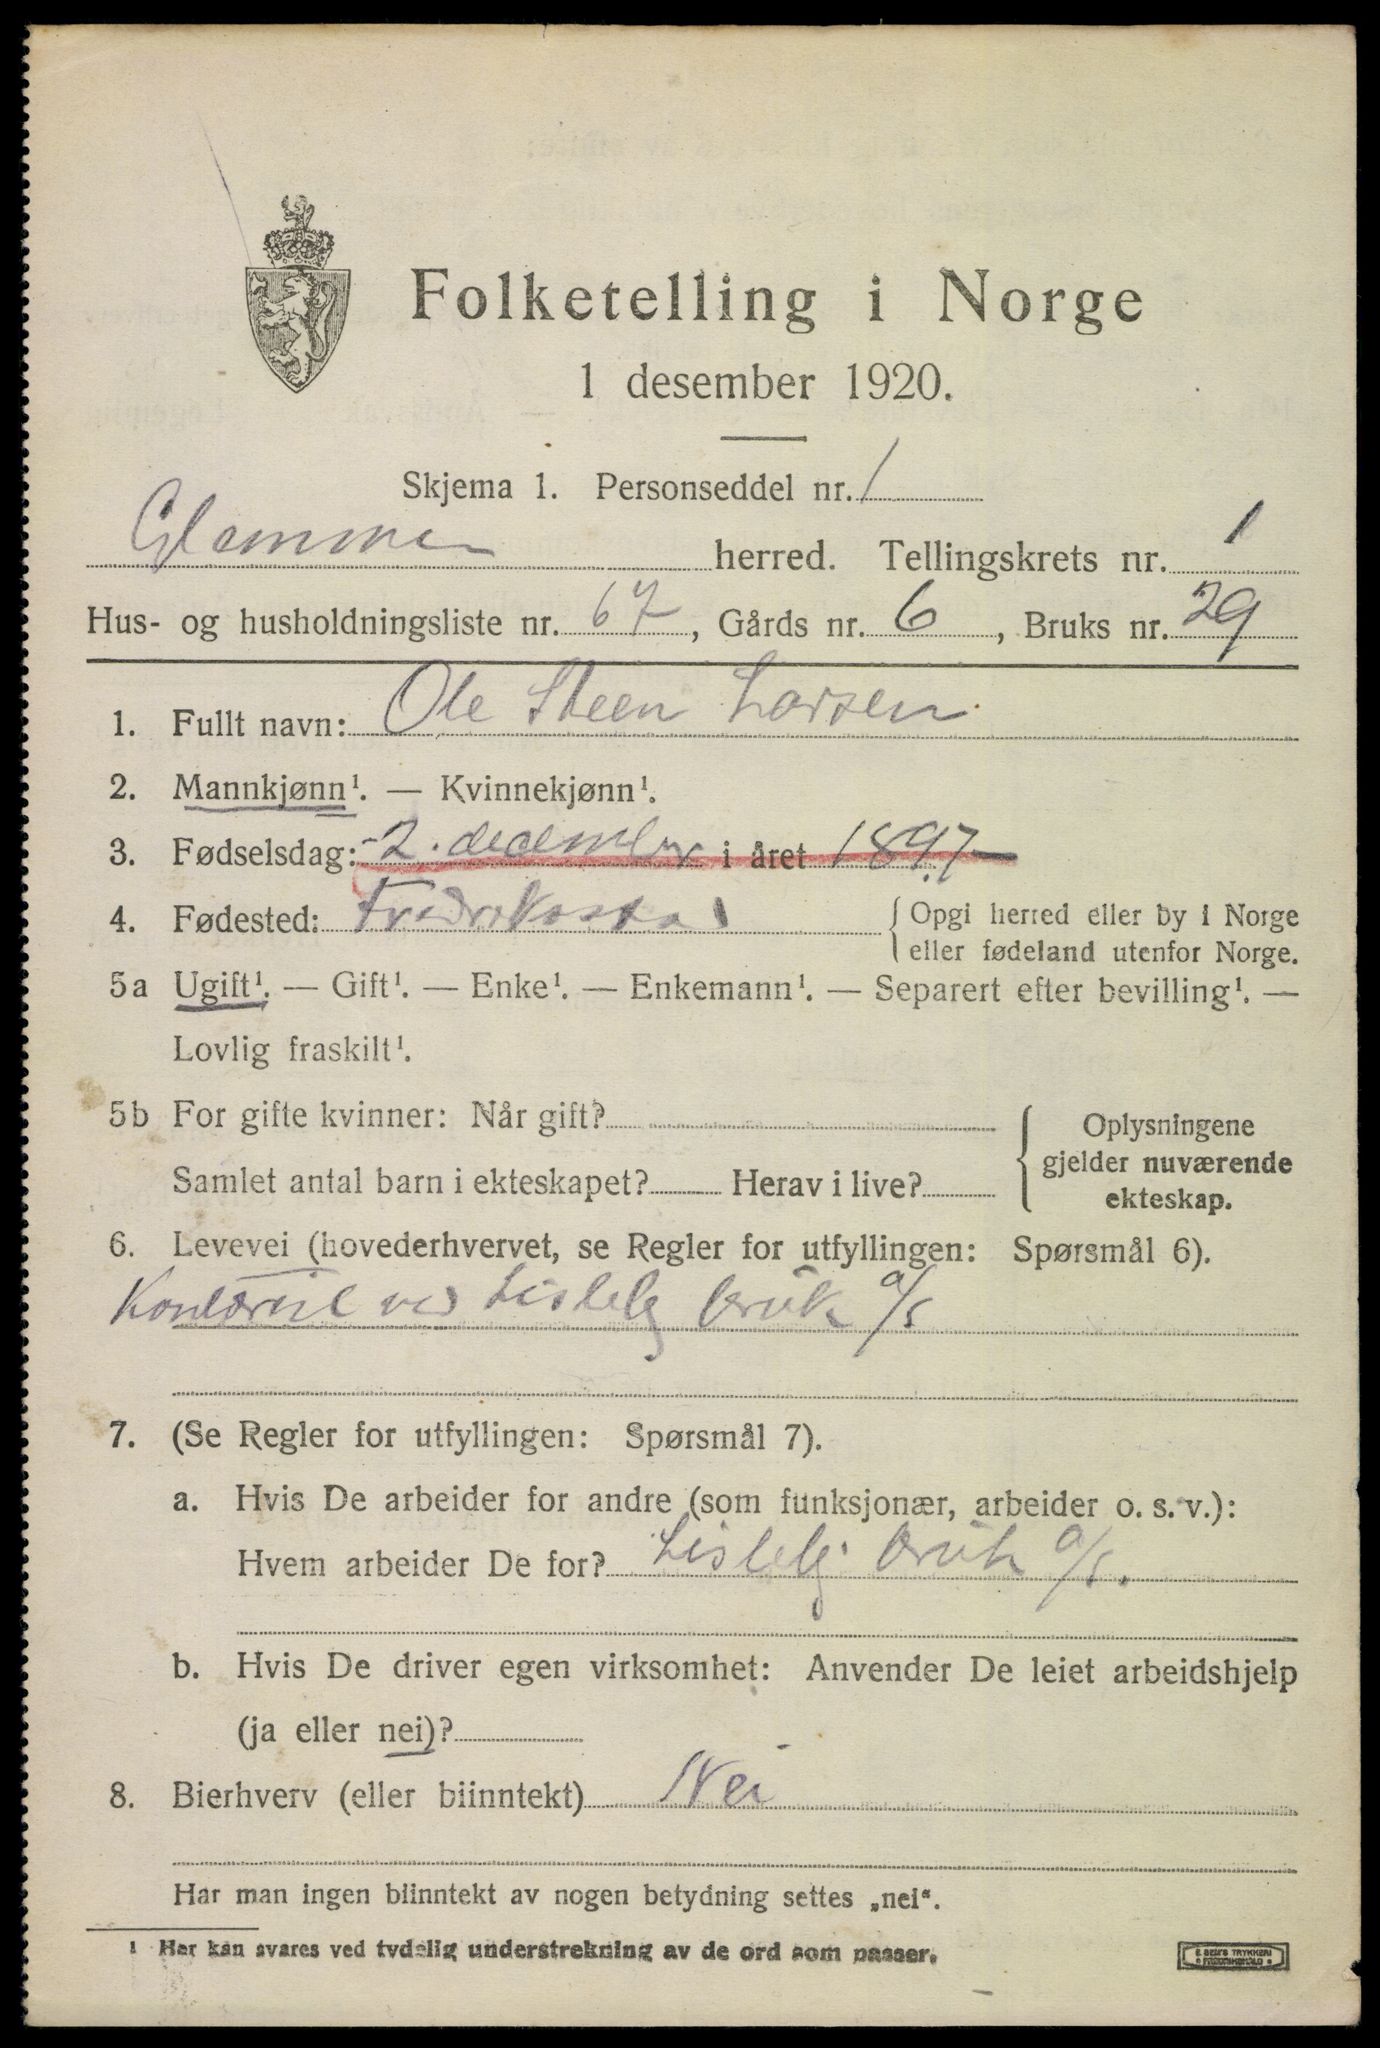 Folketelling i Norge
1 desember 1920.
Skjema 1. Personseddel nr. 1
Glemmen herred. Tellingskrets nr. 1
Hus- og husholdningsliste nr. 67, Gårds nr. 6, Bruks nr. 29
1. Fullt navn: Ole Steen Larsen
2. Mannkjønn¹. — Kvinnekjønn¹.
3. Fødselsdag: 2. december i året 1897
4. Fødested: Fredrikstad {Opgi herred eller by i Norge
eller fødeland utenfor Norge.
5a Ugift¹. — Gift¹. — Enke¹. — Enkemann¹. — Separert efter bevilling¹. —
Lovlig fraskilt¹.
5b For gifte kvinner: Når gift?
Samlet antal barn i ekteskapet? Herav i live?
Oplysningene
gjelder nuværende
ekteskap.
6. Levevei (hovederhvervet, se Regler for utfyllingen: Spørsmål 6).
Kontorist ved Lisleby bruk a/s
7. (Se Regler for utfyllingen: Spørsmål 7).
a. Hvis De arbeider for andre (som funksjonær, arbeider o. s. v.):
Hvem arbeider De for? Lisleby bruk a/s.
b. Hvis De driver egen virksomhet: Anvender De leiet arbeidshjelp
(ja eller nei)?
8. Bierhverv (eller biinntekt) Nei
Har man ingen biinntekt av nogen betydning settes „nei“.
1 Her kan svares ved tydelig understrekning av de ord som passer.
E. SEM'S TRYKKERI
FREDRIKSHALD